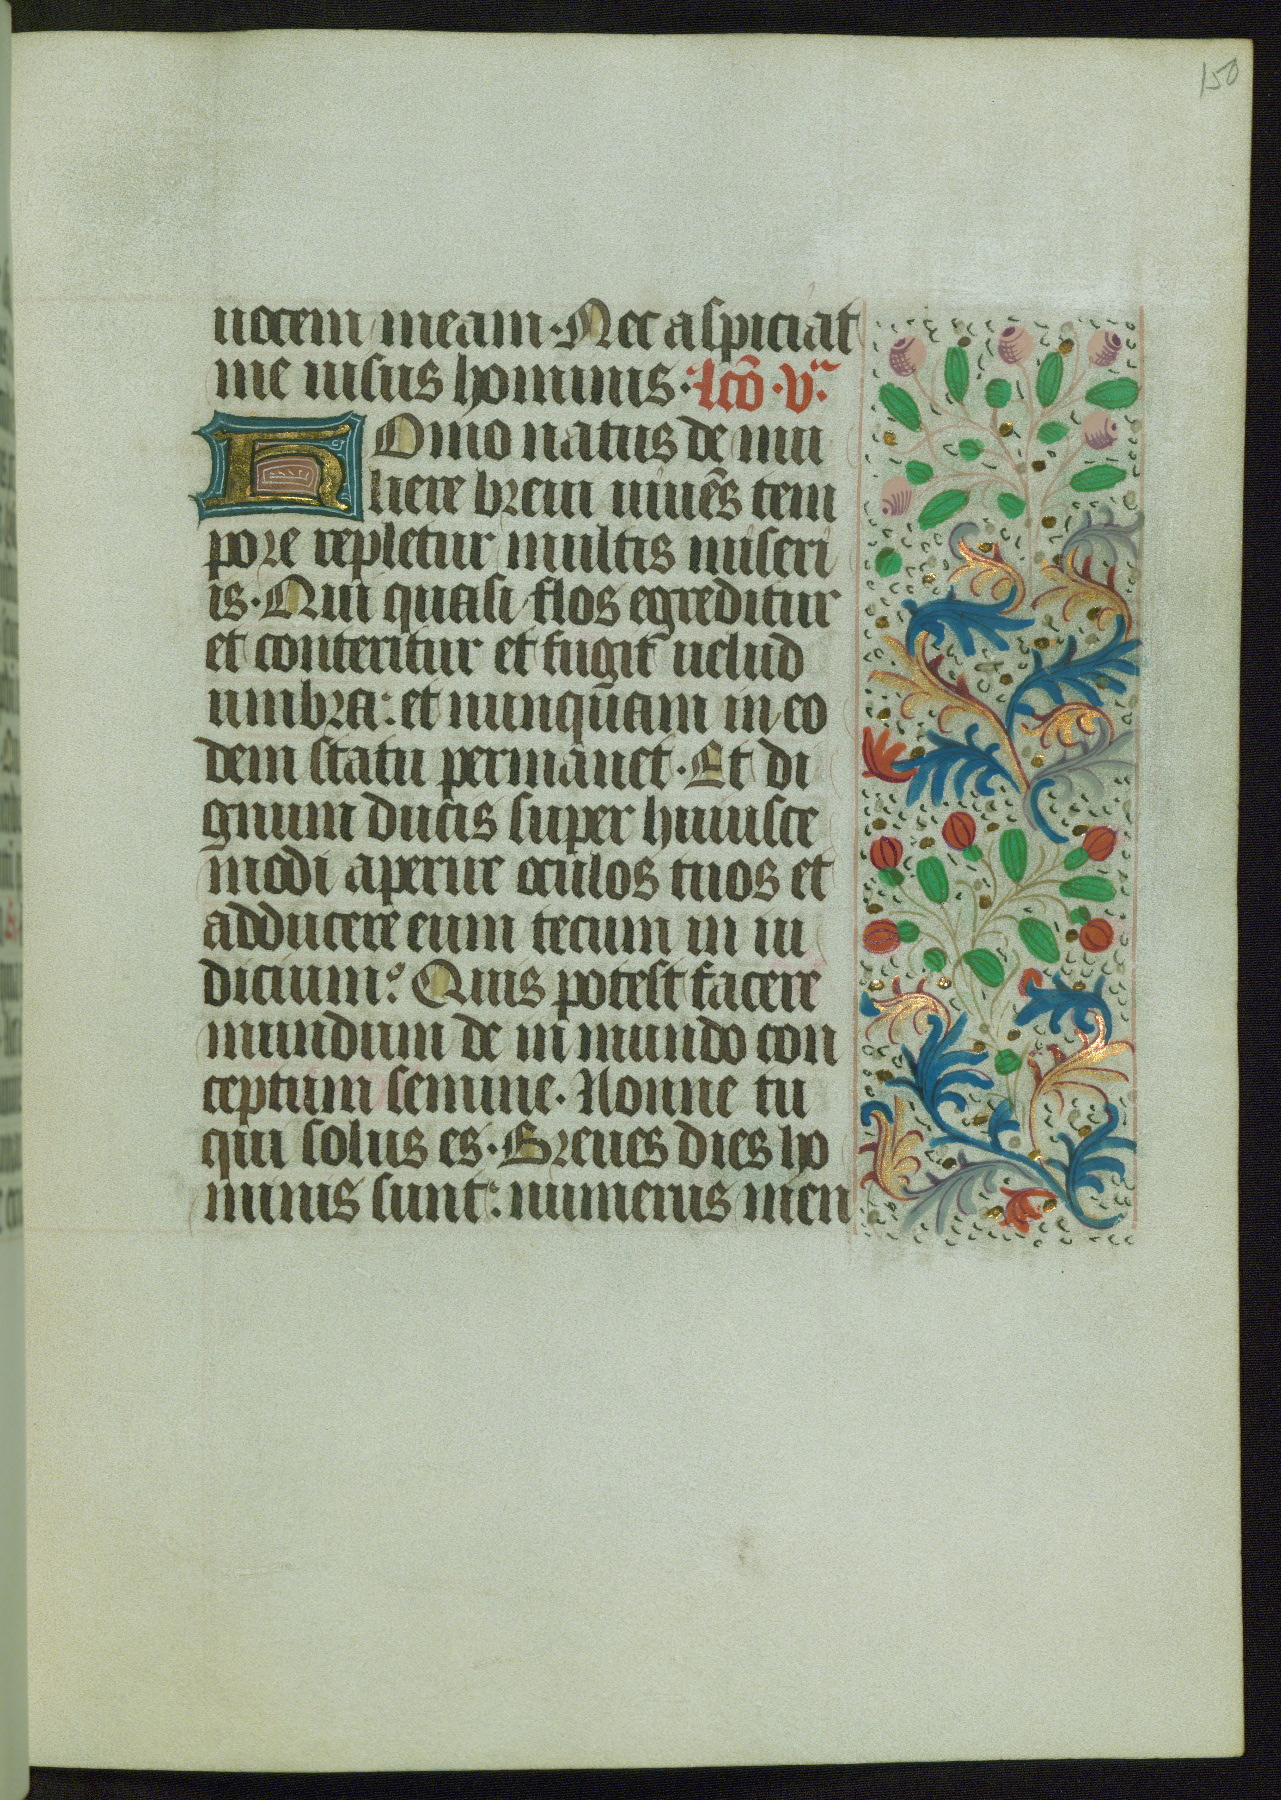 150
uocem meam. Nec aspiciat
me uisus hominis. Lcō .vᵃ.
HOmo natus de mu
liere breui uiuēs tem
pore repletur multis miseri
is. Qui quasi flos egreditur
et conteritur et fugit uelud
umbra: et nunquam in eo
dem statu permanet. Et di
gnum ducis super huiusce
modi aperire oculos tuos et
adducere eum tecum in iu
dicium? Quis potest facere
mundum de in mundo con
ceptum semine. Nonne tu
qui solus es. Breues dies ho
minis sunt: numerus men